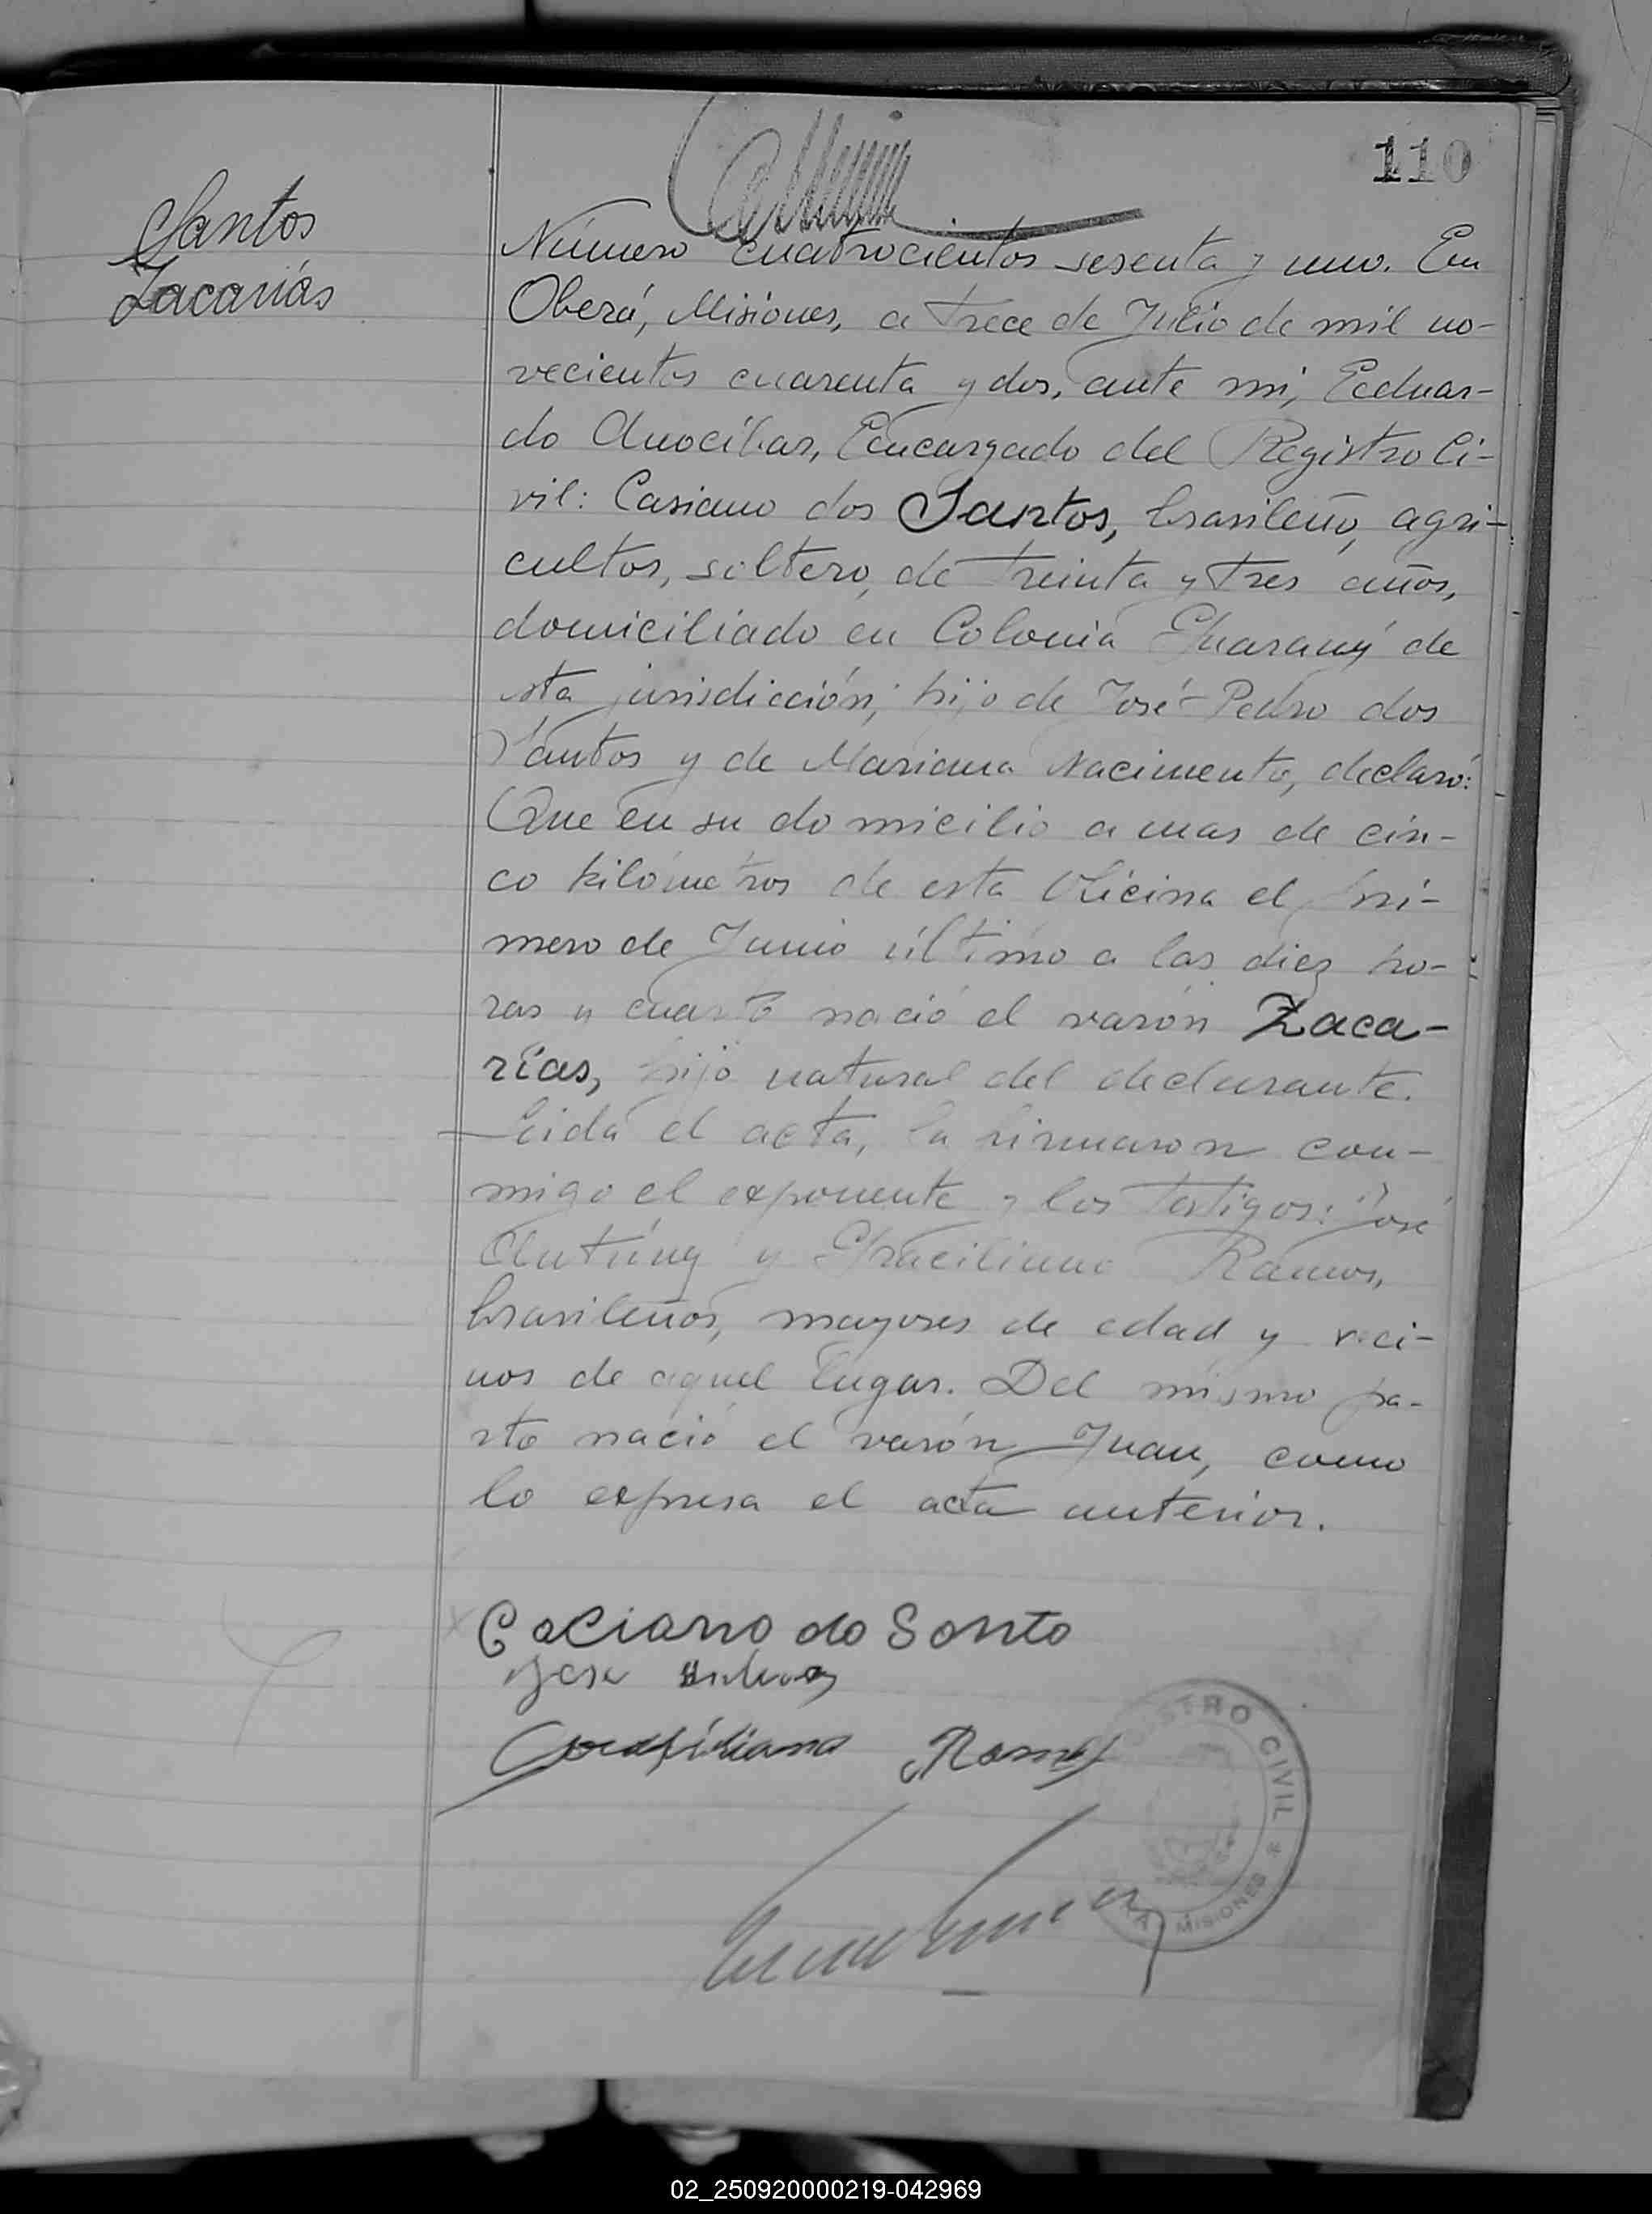 110
Santos
Zacarías
Número cuatrocientos sesenta y uno. En
Oberá, Misiones, a trece de Julio de mil no-
vecientos cuarenta y dos, ante mí, Eduar-
do Anocíbar, Encargado del Registro Ci-
vil: Casiano dos Santos, brasileño, agri-
cultor, soltero, de treinta y tres años,
domiciliado en Colonia Guaraný de
esta jurisdicción; hijo de José Pedro dos
Santos y de Mariana Nacimento, declaró:
Que en su domicilio a mas de cin-
co kilómetros de esta Oficina el pri-
mero de Junio último a las diez ho-
ras y cuarto nació el varón Zaca-
rías, hijo natural del declarante.
Leida el acta, la firmaron con-
migo el exponente y los testigos: José
Antúng y Graciliano Ramos,
brasileños, mayores de edad y veci-
nos de aquel lugar. Del mismo pa-
rto nació el varón Juan, como
lo expresa el acta anterior.
Caciano do Santo
Jose
Ramos
REGISTRO CIVIL * MISIONES
02_250920000219-042969